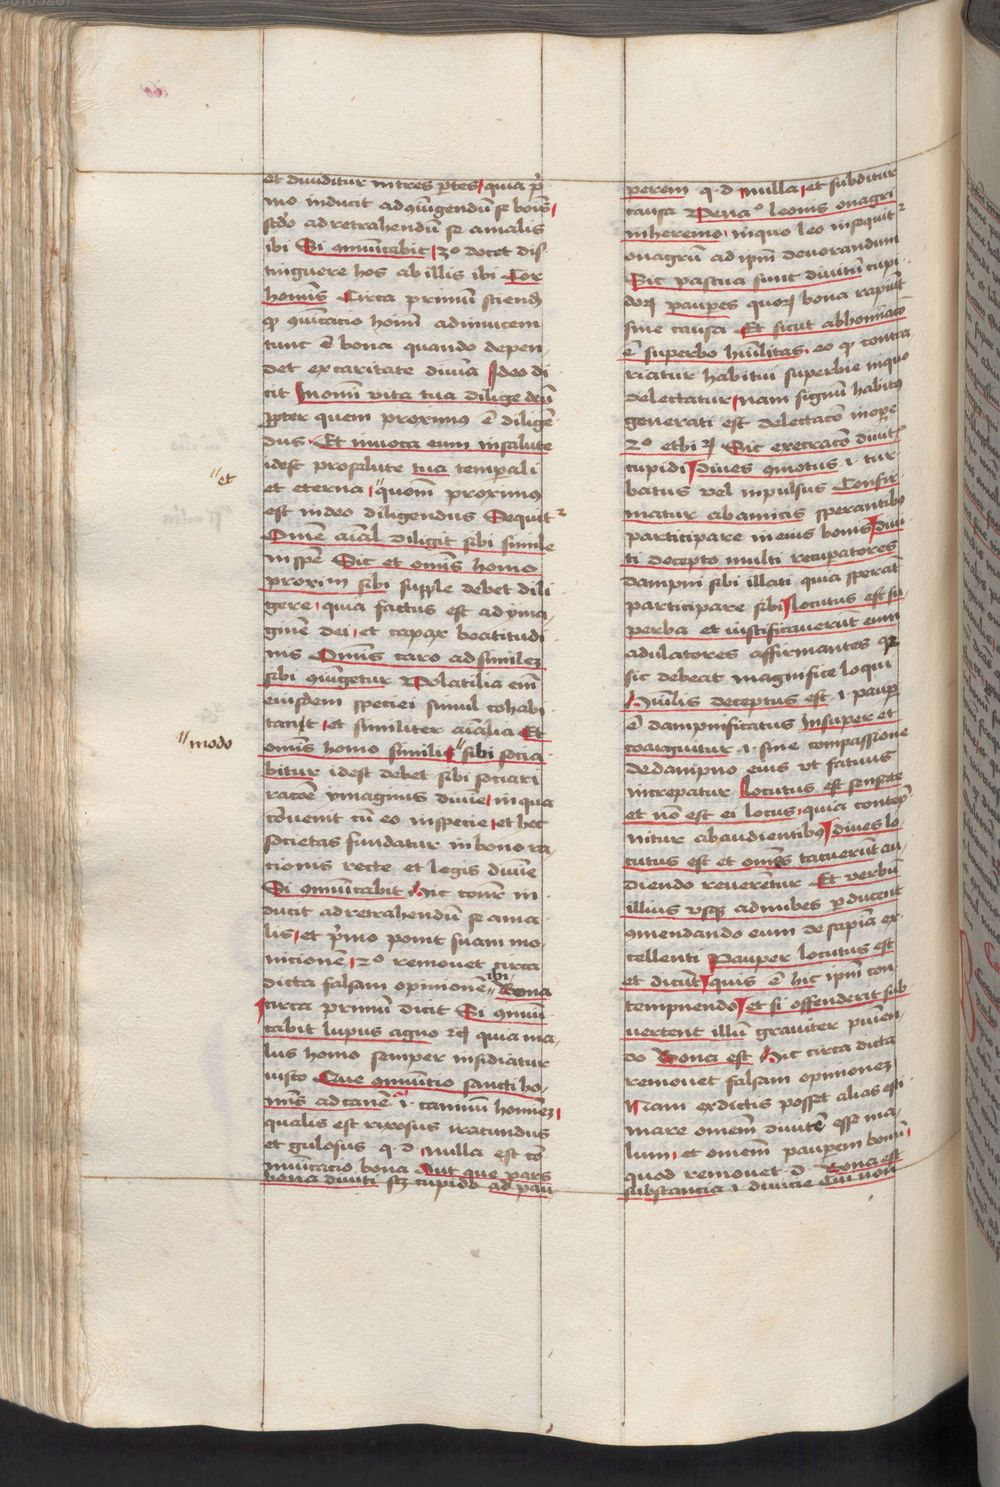 et diuiditur in tres ptes, quia pͥ
mo inducit ad ꝯiūgendū se bonis,
scdo ad retrahendū se a malis
ibi Si cōmūicabit, 3o docet dis
tinguere hos ab illis ibi Cor
hominis Circa primum sciend
qꝫ cōmūicacio hoim̄ adinuicem
tunc ē bona quando depen
det ex caritate diuina Ideo di
cit In omni vita tua dilige deū
ꝓpter quem proximus ē diligē
dus. Et inuoca eum in salute
idest pro salute tua temporali
et eterna, quoniam proximus
"et
est in deo diligendus Sequit2
Omē aīal diligit sibi simile
in spē Sic et omīs homo
proximū sibi supple debet dili
gere, quia factus est ad yma
ginē dei, et capax beatitudi
nis Omīs caro ad similem
sibi ꝯiūgetur Volatilia enī
eiusdem speciei simul cohabi
tant, et similiter aīalia Et
omīs homo simili "sibi socia
"modo
bitur idest debet sibi sociari
racōe ymaginis diuine, in qua
cōuenit cū eo in specie, et hec
societas fundatur in bono ra
cionis recte et legis diuine
Si cōmūicabit Hic conr in
ducit ad retrahendū se a ma
lis, et pͥmo ponit suam mo
nicionē, 2o remouet circa
dicta falsam opinionē "ibi Bona
circa primū dicit Si cōmūi
cabit lupus agno rq quia ma
lus homo semper insidiatur
iusto Que cōmūicio sancti ho
minis ad canē .i. caninū hominē,
qualis est rixosus iracundus
et gulosus q. d. nulla est cō
mūicacio bona Aut que pars
bona diuiti scꝫ cupido ad pau
perem q. d. nulla, et subditur
causa Venaꝰ leonis onagri
in heremo, in quo leo insequit2
onagrū ad ipm̄ deuorandum
Sic pascua sunt diuitū cupi
dorꝝ pauperes quorꝝ bona rapiūt
sine causa Et sicut abhominacō
ē superbo humilitas, eo qꝫ contra
riatur habitui superbie in quo
delectatur, nam signū habitus
generati est delectacō in opere
2o ethicorꝝ Sic execracō diuit2
cupidi, diues cōmotus .i. tur
batus vel inpulsus Confir
matur ab amicis sperantibus
participare in eius bonis, diui
ti decepto multi recupatores
dampni sibi illati quia sperāt
participare sibi, locutus est su
perba et iustificauerūt eum
adulatores affirmantes qꝫ
sic debeat magnifice loqui
Humilis deceptus est .i. paup
ē dampnificatus Insuper et
coarguitur .i. sine compassione
de dampno eius vt fatuus
increpatur Locutus est sensate
et nō est ei locus, quia contep
nitur ab audientibus, diues lo
cutus est et omēs tacuerūt au
diendo reuerētur Et verbū
illius vsqꝫ ad nubes perducent
cōmendando eum de sapiā ex
cellenti Pauper locutus est
et dicūt, quis ē hic ipm̄ con
tempnendo, et si offenderit sub
uertent illū grauiter puniēn
do Bona est Hic circa dicta
remouet falsam opinionem
Nam ex dictis posset alias esti
mare omem diuitē esse ma
lum, et omem pauperem bonū,
quod remouet .d. Bona est
substancia .i. diuicie Cui non